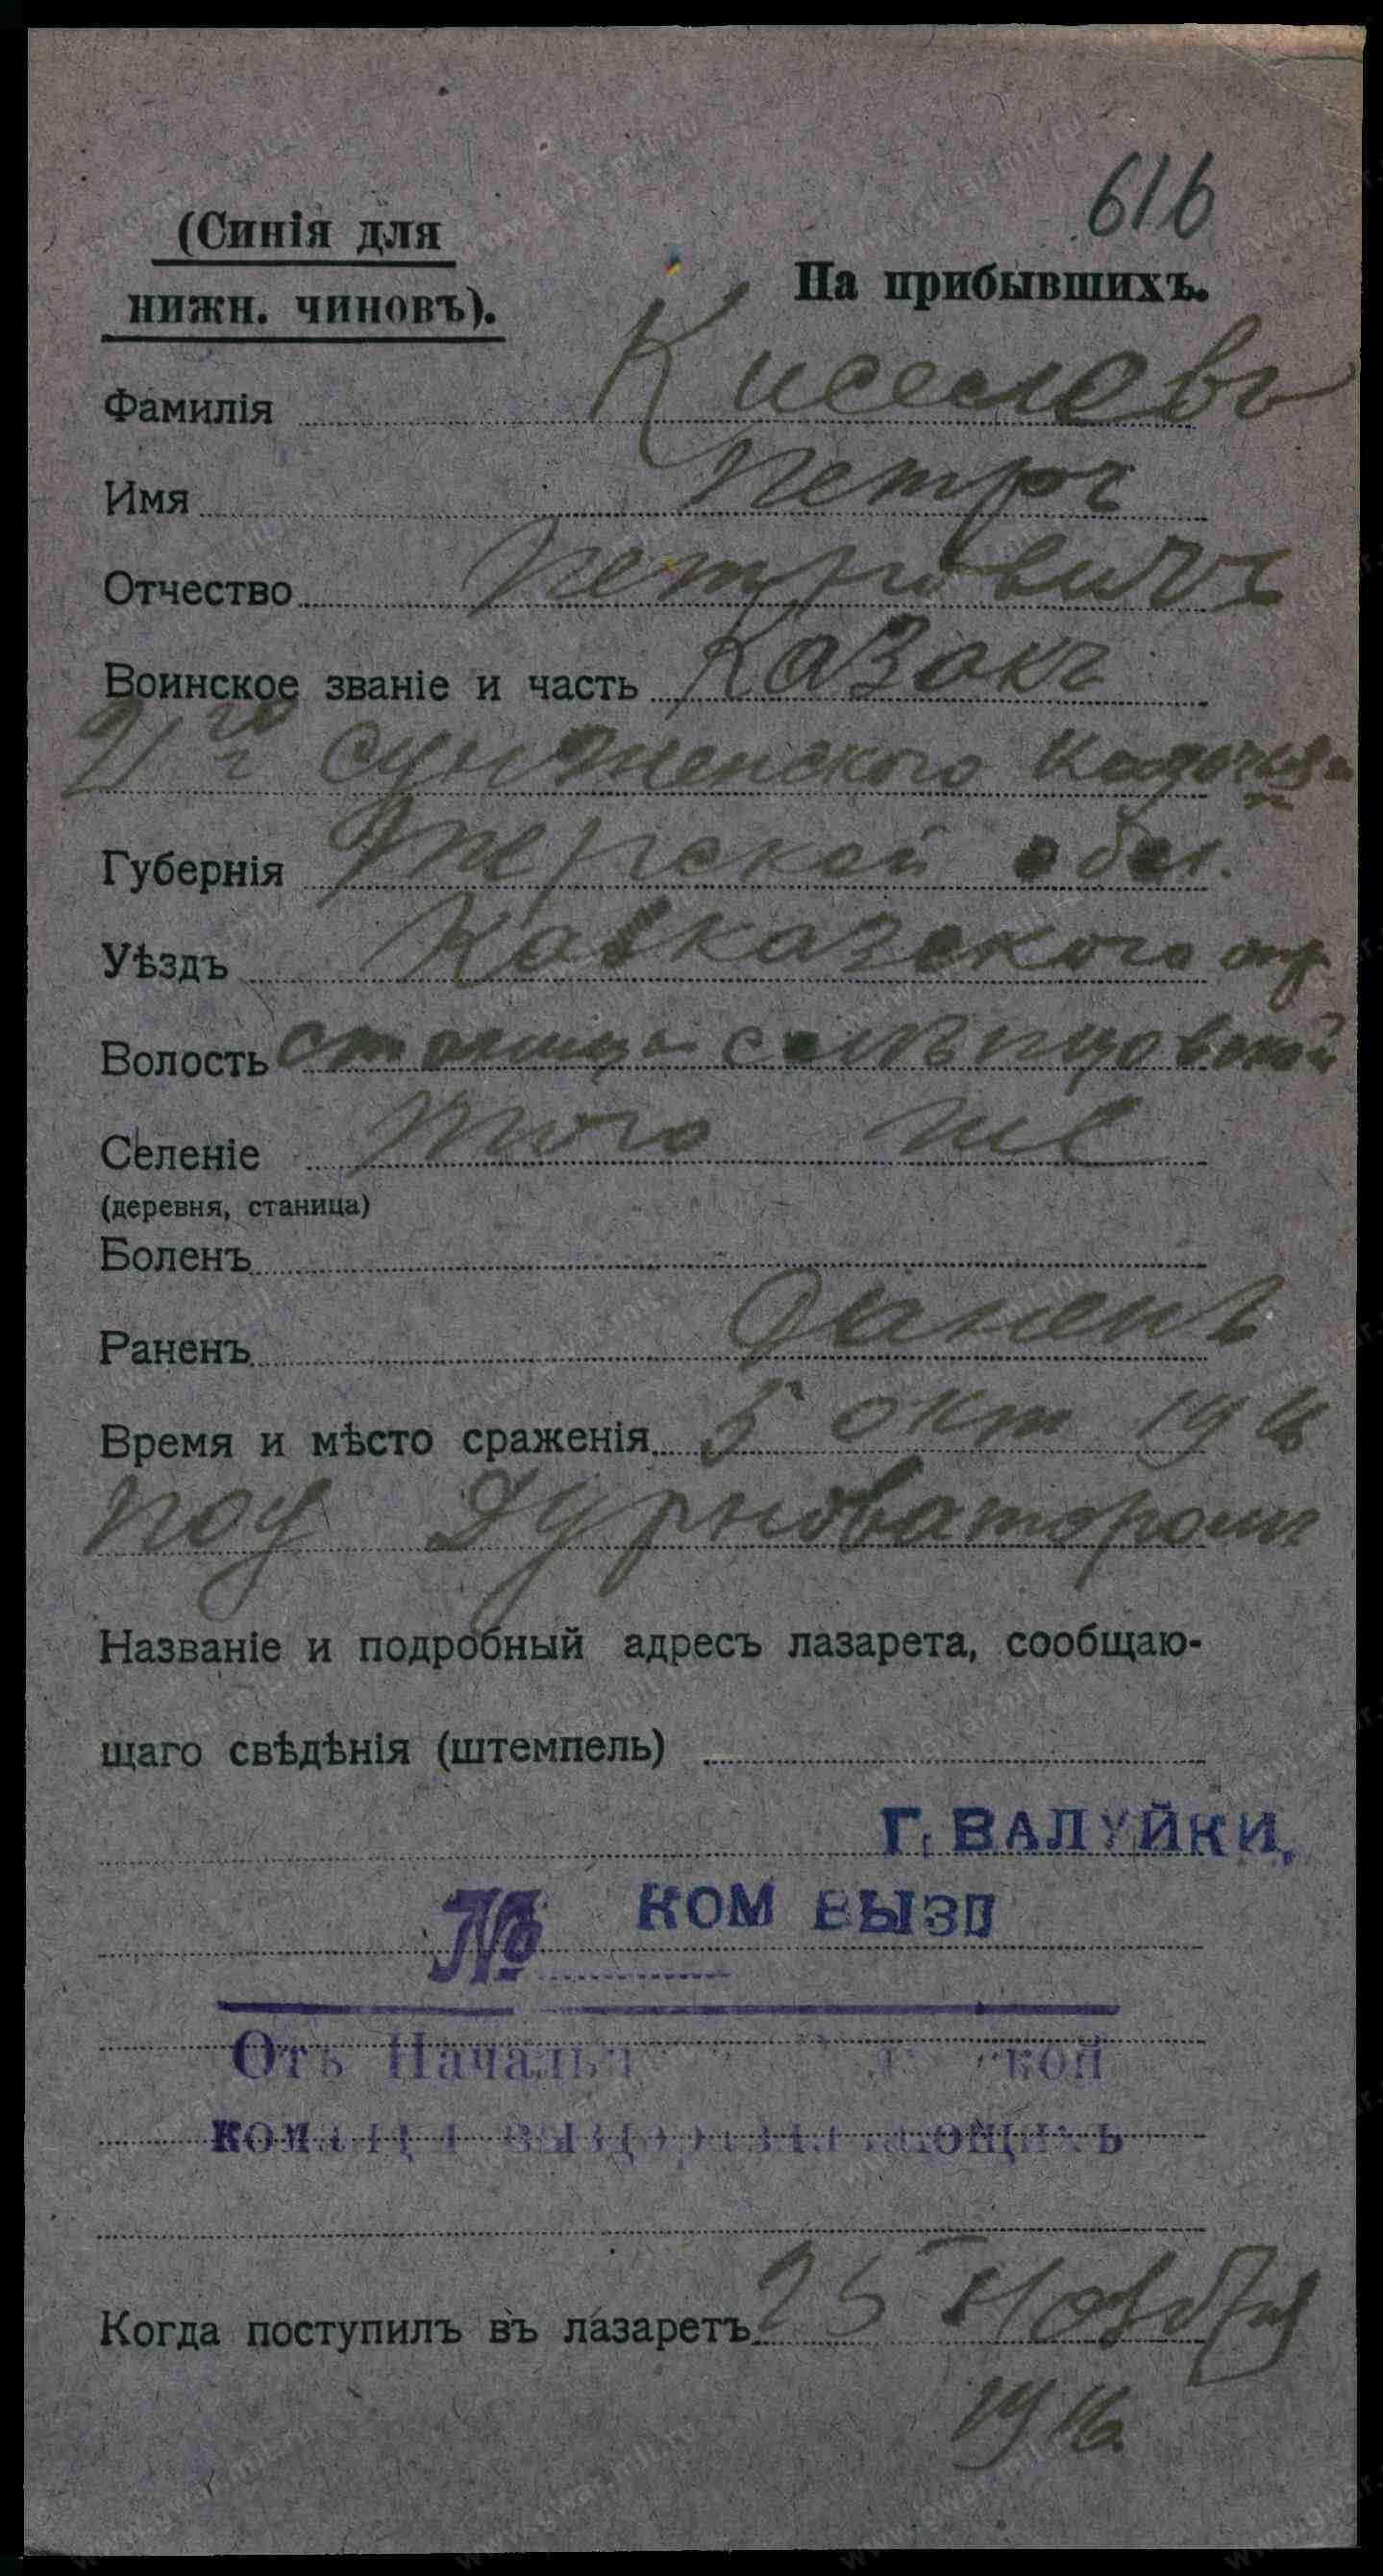 616
(Синія для
нижн. чиновъ).
На прибывшихъ.
Фамилія Киселевъ
Имя Петръ
Отчество Петровичъ
Воинское званіе и часть Казакъ
2го Сунженского
Губернія Терской обл.
Уѣздъ Кавказского отд
Волость станица слѣпцовской
Селеніе того же
(деревня, станица)
Боленъ
Раненъ Раненъ
Время и мѣсто сраженія 5 окт 1916
под Дурноваторомъ
Названіе и подробный адресъ лазарета, сообщаю-
щаго свѣдѣнія (штемпель)
Г. ВАЛУЙКИ.
КОМ ВЫЗД
№
Отъ
Когда поступилъ въ лазаретъ 25 Ноября
1916